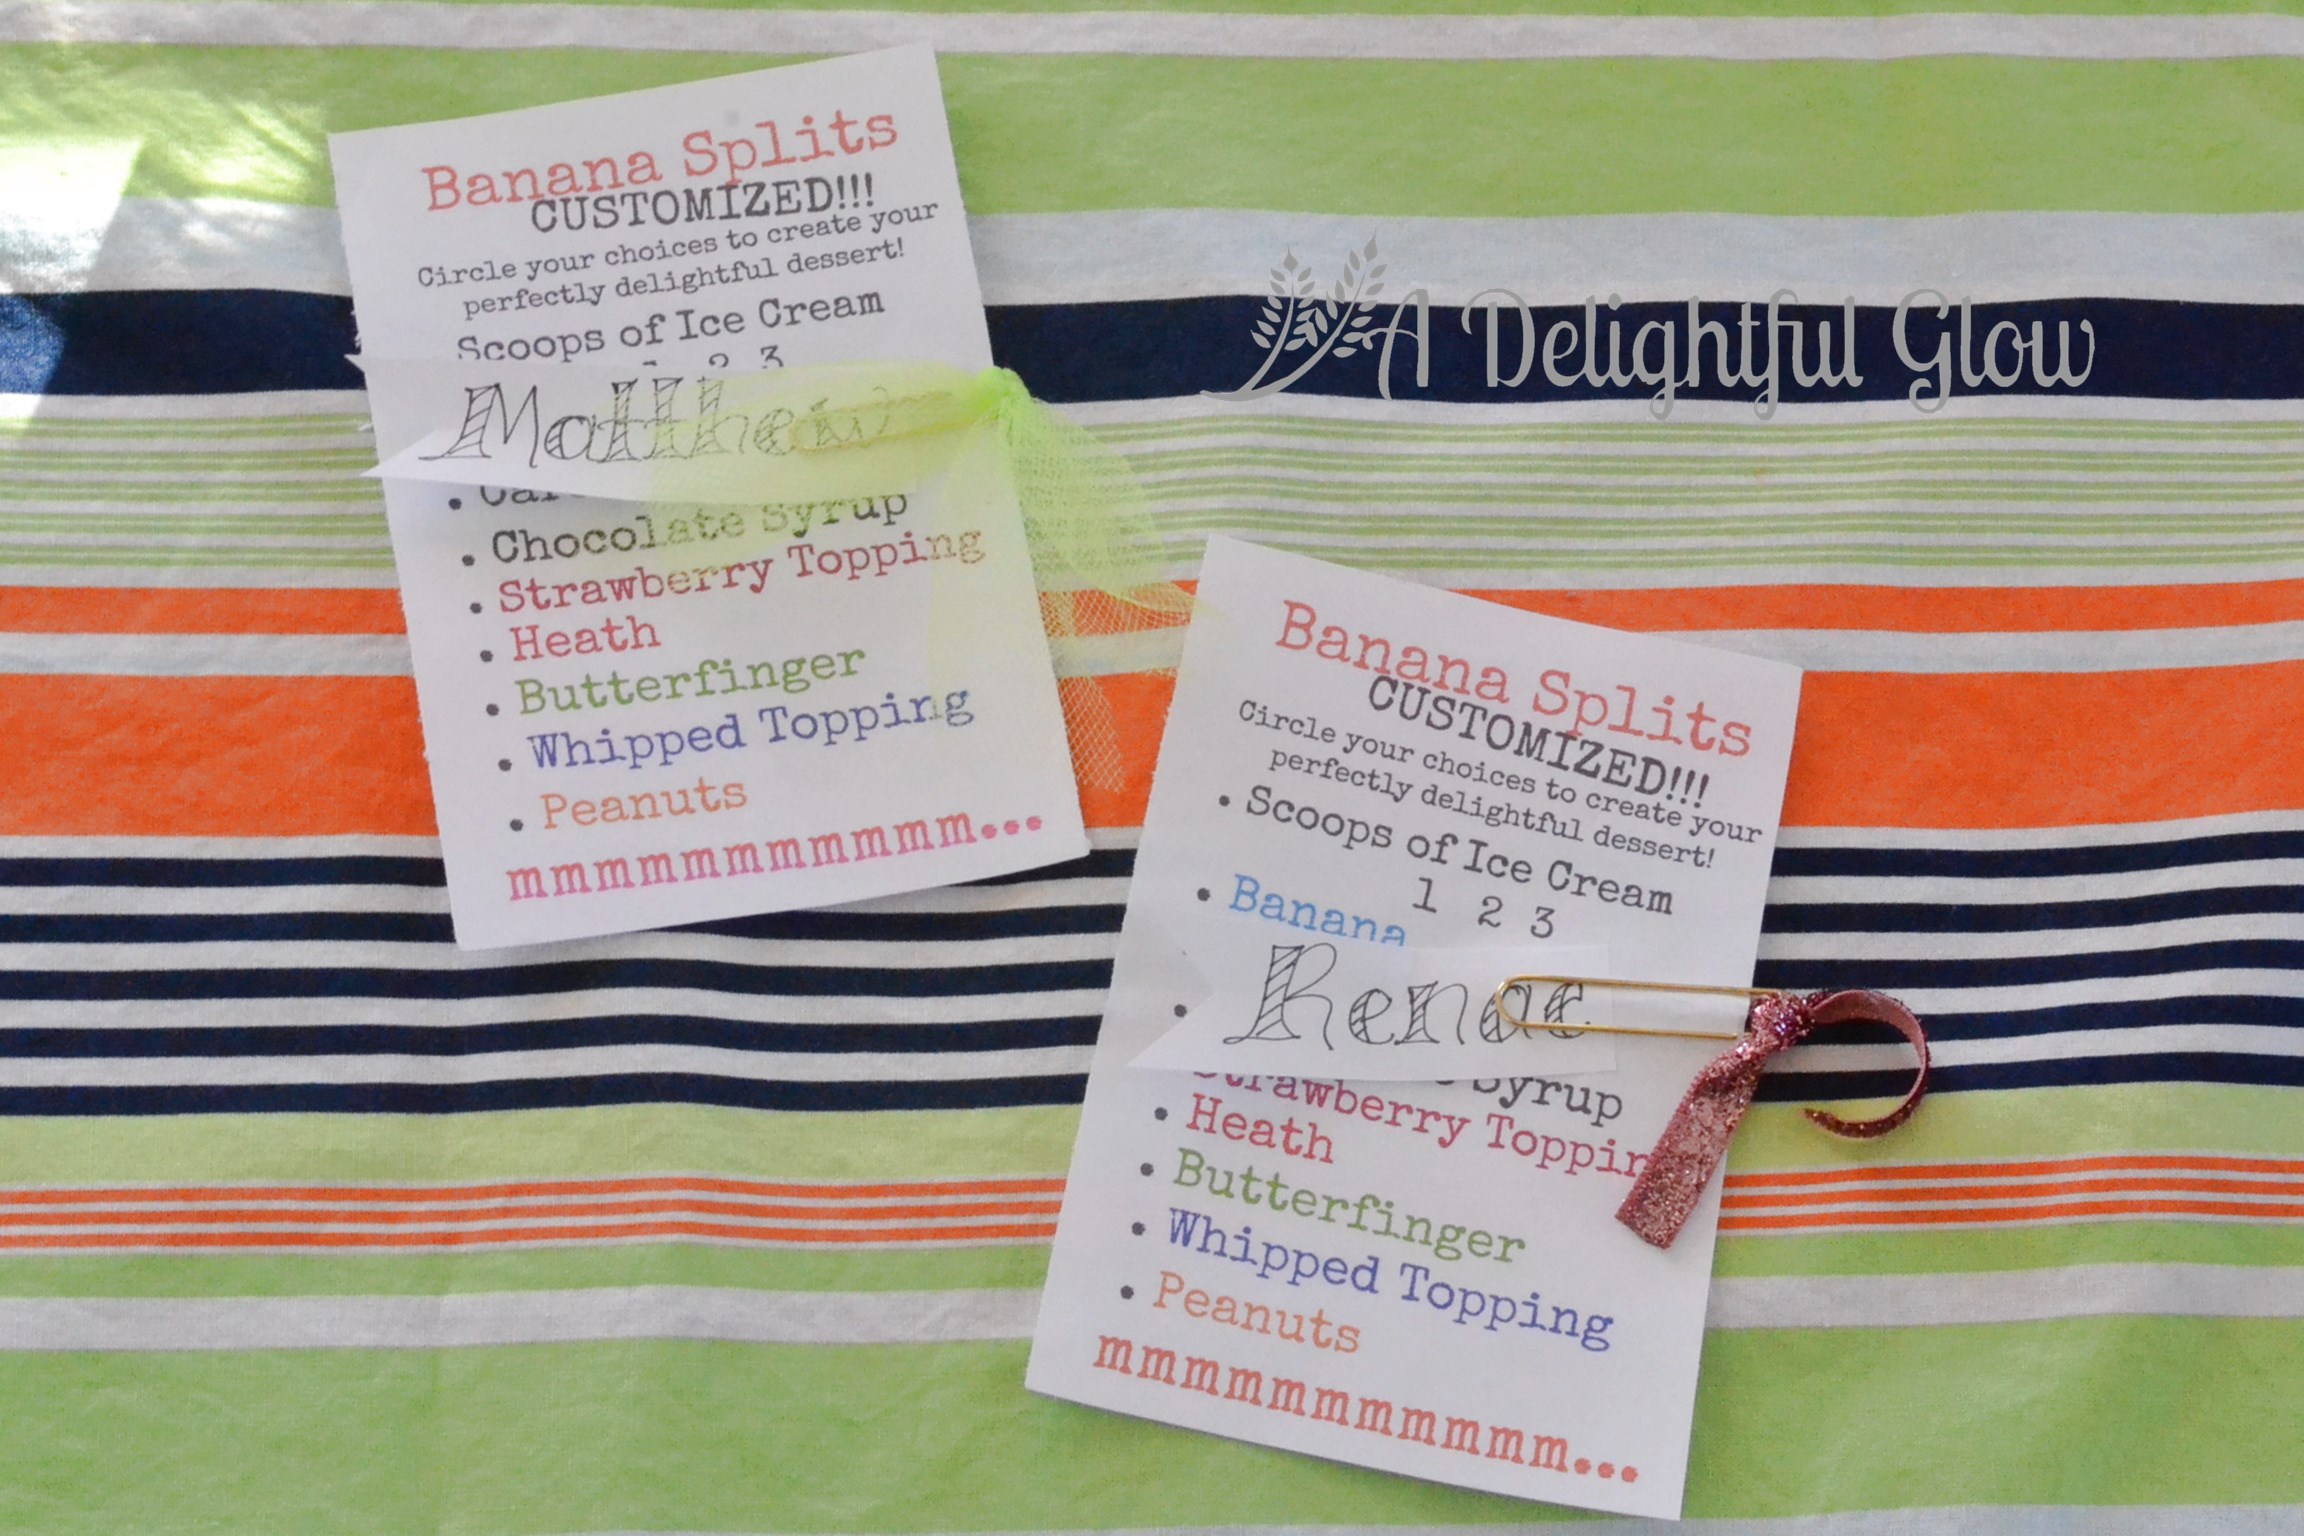 Banana Splits
CUSTOMIZED!!!
Circle your choices to create your
perfectly delightful dessert!
Scoops of Ice Cream
2 3
Matthew
Chocolate Syrup
Strawberry Topping
Heath
Butterfinger
Whipped Topping
Peanuts
mmmmmmmmmmm...
A Delightful Glow
Banana Splits
CUSTOMIZED!!!
Circle your choices to create your
perfectly delightful dessert!
Scoops of Ice Cream
1 2 3
Banana
Renae
Syrup
Strawberry Toppin
Heath
Butterfinger
Whipped Topping
Peanuts
mmmmmmmmmmm...